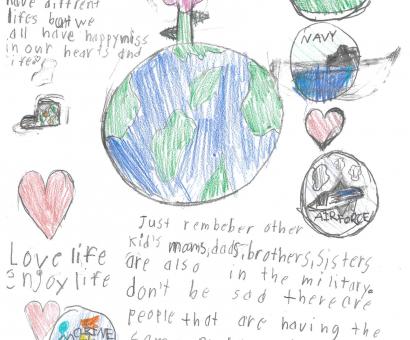 have different
lifes but we
all have happyniss
in our hearts and
lifes
NAVY
AIRFORCE
Love life
enjoy life
Just rembeber other
kid's moms, dads, brothers, sisters
are also in the military.
don't be sad there are
people that are having the
MARINE